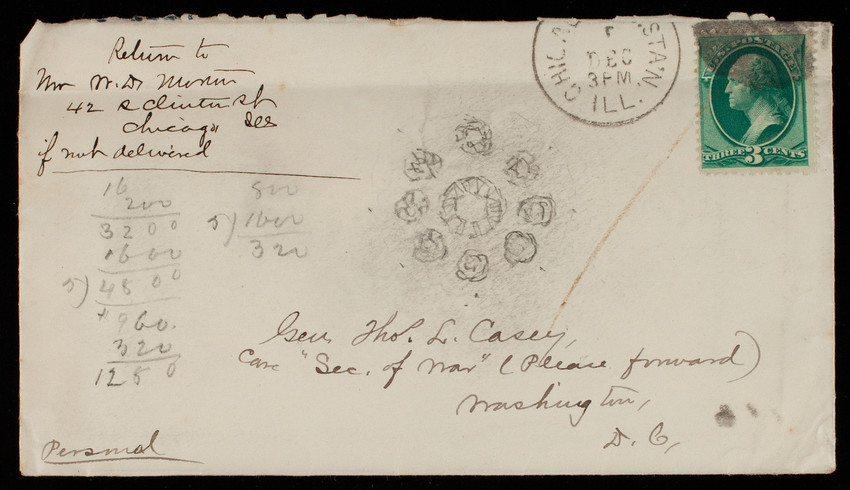 Return to
W. D. Morton
42 S Clinton St
Chicago Ills
if not delivered
CHICAGO STA'N.
5
DEC
3 PM
ILL.
U.S. POSTAGE
THREE 3 CENTS
16
200
3200
1600
5) 4800
* 960.
320
1280
800
5) 1600
320
Gen Tho^s. L. Casey,
Care "Sec. of War" (Please forward)
Washington,
D. C.,
Personal